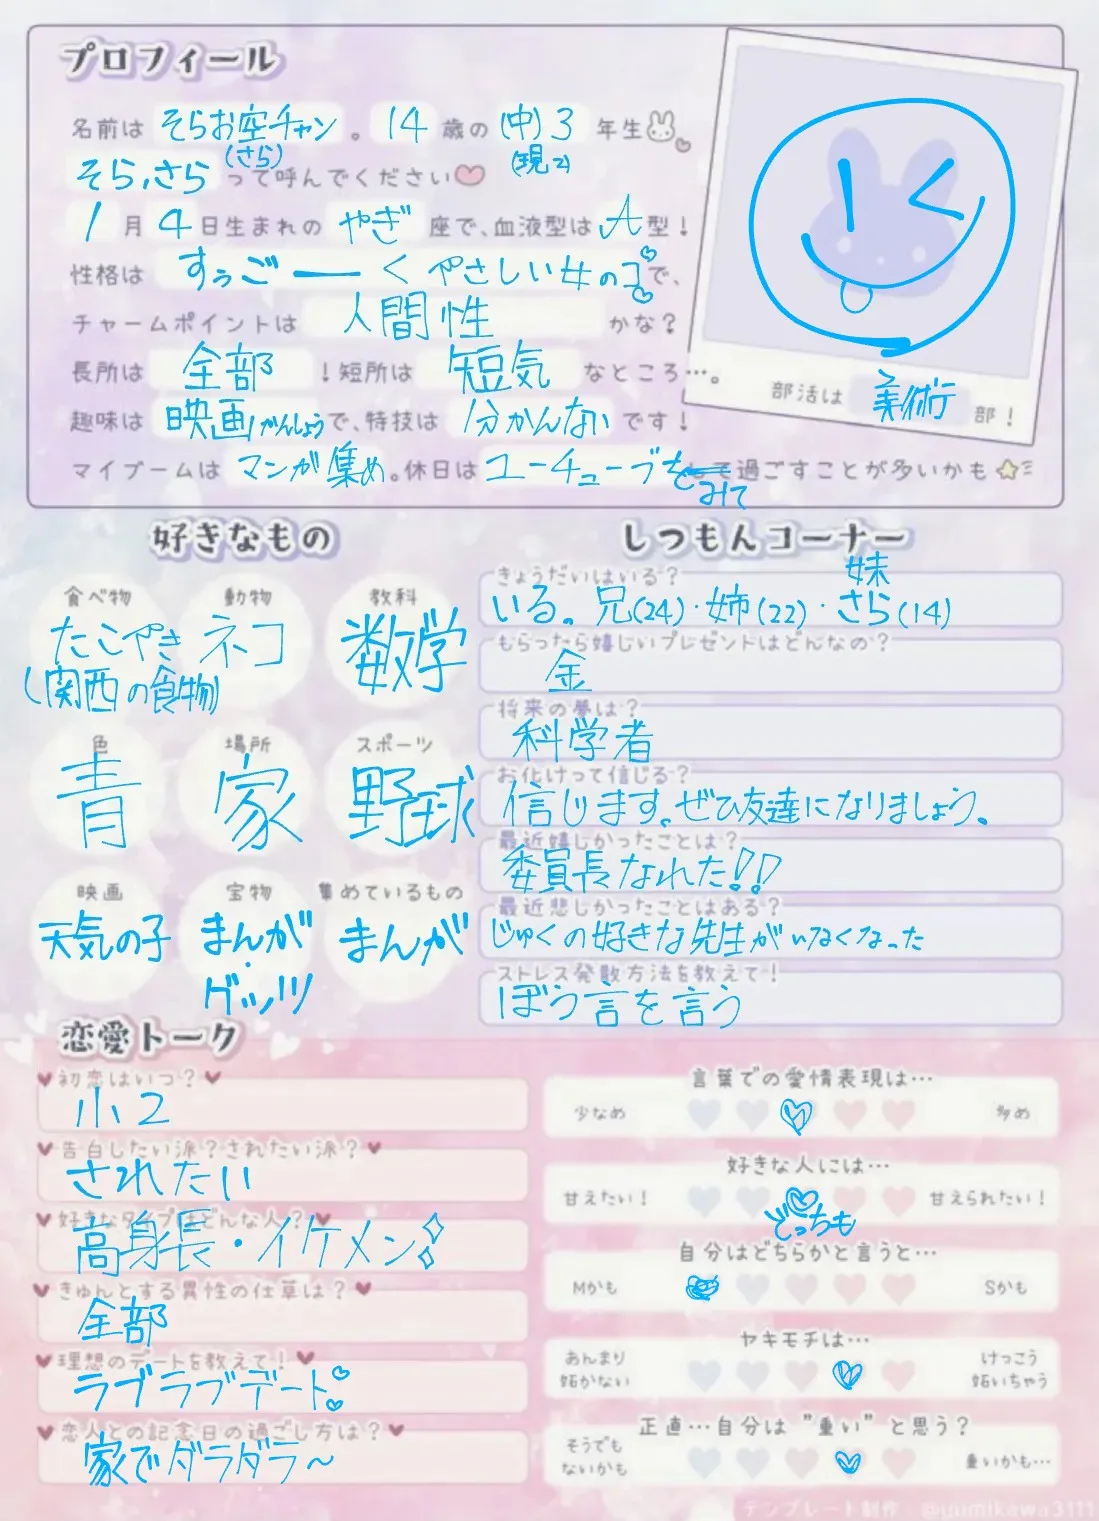 プロフィール
名前は そらお空チャン 。 14 歳の (中)3 年生
(さら) (現2)
そら,さら って呼んでください♡
1 月 4 日生まれの やぎ 座で、血液型は A 型！
性格は すっごーく やさしい女のコ で、
チャームポイントは 人間性 かな？
長所は 全部 ！短所は 短気 なところ…。
趣味は 映画かんしょう で、特技は 1分かんない です！
マイブームは マンガ集め 。休日は ユーチューブを して 過ごすことが多いかも☆
みて
部活は 美術 部！
好きなもの
食べ物 動物 教科
たこやき ネコ 数学
(関西の食物)
色 場所 スポーツ
青 家 野球
映画 宝物 集めているもの
天気の子 まんが・グッツ まんが
しつもんコーナー
きょうだいはいる？
妹
いる。兄(24)・姉(22)・さら(14)
もらったら嬉しいプレゼントはどんなの？
金
将来の夢は？
科学者
お化けって信じる？
信じます。ぜひ友達になりましょう。
最近嬉しかったことは？
委員長なれた!!
最近悲しかったことはある？
じゅくの好きな先生がいなくなった
ストレス発散方法を教えて！
ぼう言を言う
恋愛トーク
♥初恋はいつ？♥
小2
♥告白したい派？されたい派？♥
されたい
♥好きなタイプはどんな人？♥
高身長・イケメン
♥きゅんとする異性の仕草は？♥
全部
♥理想のデートを教えて！♥
ラブラブデート
♥恋人との記念日の過ごし方は？♥
家でダラダラ〜
言葉での愛情表現は…
少なめ 多め
好きな人には…
甘えたい！ 甘えられたい！
どっちも
自分はどちらかと言うと…
Mかも Sかも
ヤキモチは…
あんまり妬かない けっこう妬いちゃう
正直…自分は ”重い” と思う？
そうでもないかも 重いかも…
テンプレート制作 @yumikawa3111